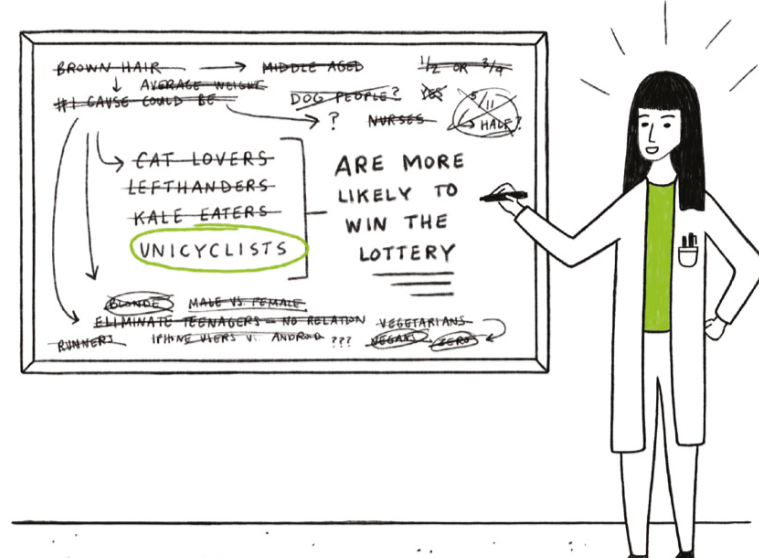 BROWN HAIR → MIDDLE AGED 1/2 OR 3/9
AVERAGE WEIGHT
#1 CAUSE COULD BE
DOG PEOPLE? YES 5/11
? NURSES → HALF?
CAT LOVERS
LEFTHANDERS
KALE EATERS
UNICYCLISTS
ARE MORE
LIKELY TO
WIN THE
LOTTERY
BLONDE MALE VS. FEMALE
ELIMINATE TEENAGERS — NO RELATION VEGETARIANS
RUNNERS IPHONE V. ANDROID ??? VEGANS ZERO